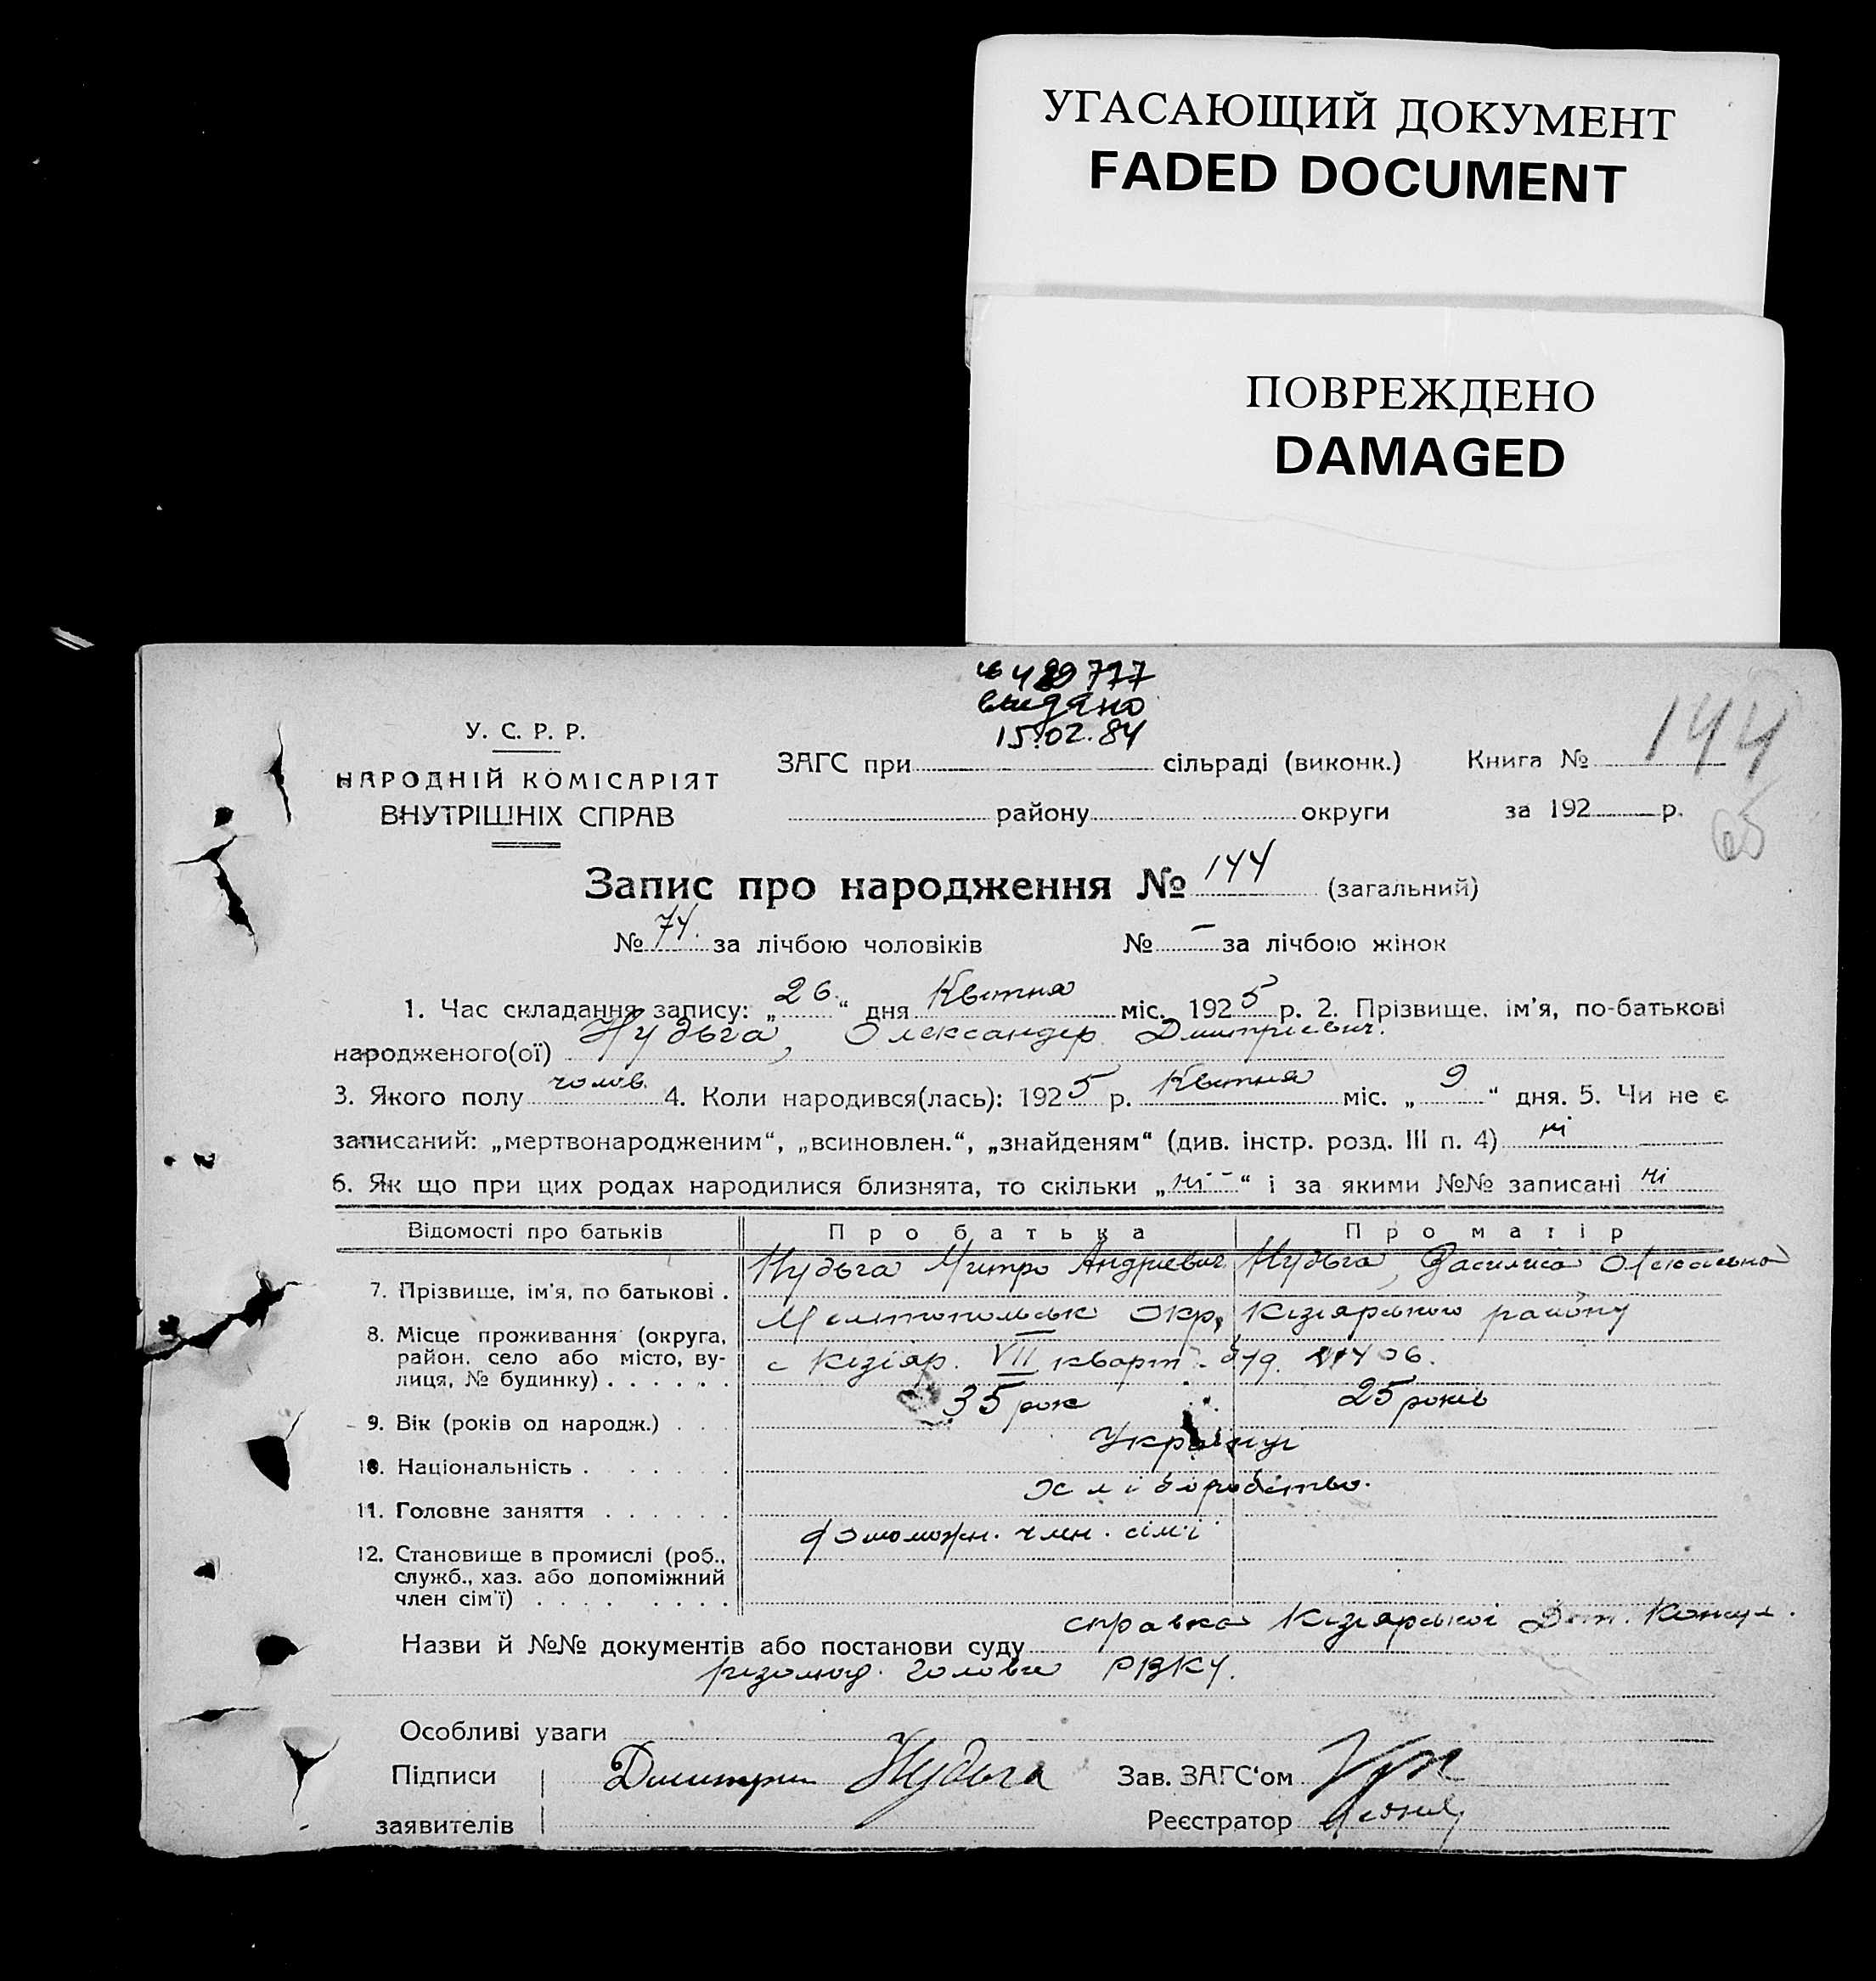 УГАСАЮЩИЙ ДОКУМЕНТ
FADED DOCUMENT
ПОВРЕЖДЕНО
DAMAGED
видано
15.02.84
У. С. Р. Р.
НАРОДНІЙ КОМІСАРІЯТ
ВНУТРІШНІХ СПРАВ
ЗАГС при сільраді (виконк.) Книга № 144
району округи за 192 р.
65
Запис про народження № 144 (загальний)
№ 74. за лічбою чоловіків № — за лічбою жінок
1. Час складання запису: „26“ дня Квітня міс. 1925 р. 2. Прізвище, ім'я, по-батькові
народженого(ої) Нудьга, Олександер Дмитрієвич.
3. Якого полу чолов. 4. Коли народився(лась): 1925 р. Квітня міс. „9“ дня. 5. Чи не є
записаний: „мертвонародженим“, „всиновлен.“, „знайденям“ (див. інстр. розд. III п. 4) ні
6. Як що при цих родах народилися близнята, то скільки „ні“ і за якими №№ записані ні
Відомості про батьків Про батька Про матір
7. Прізвище, ім'я, по батькові . Нудьга Митро Андрієвич Нудьга, Василиса
8. Місце проживання (округа, Мелітопольськ Окр, Кізіярського району
район, село або місто, ву-
лиця, № будинку) . . . . . . с Кізіяр. VII кварт. буд.
9. Вік (років од народж.) . . . 35 рок 25 років
10. Національність . . . . . . . Українці
11. Головне заняття . . . . . . хліборобство.
12. Становище в промислі (роб., допоможн. член. сім'ї
служб., хаз. або допоміжний
член сім'ї) . . . . . . . .
Назви й №№ документів або постанови суду справка Кізіярської
резолюц. Голови РВКу.
Особливі уваги
Підписи Дмитрий Нудьга Зав. ЗАГС'ом
заявителів Реєстратор